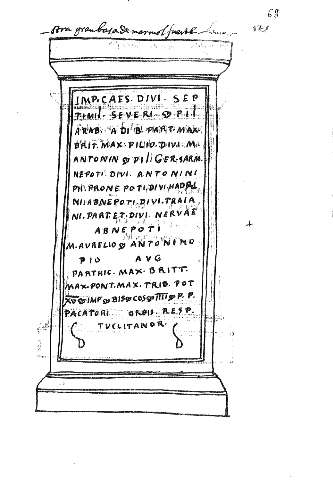 68
otra gran basa de marmol
IMP. CAES. DIVI. SEP
TIMII. SEVERI. PII
ARAB. ADIB. PART. MAX.
BRIT. MAX. FILIO. DIVI. M.
ANTONIN PII. GER. SARM.
NEPOTI. DIVI. ANTONINI
PII. PRONEPOTI. DIVI. HADRI
NI. ABNEPOTI. DIVI. TRAIA
NI. PART. ET. DIVI. NERVAE
ABNEPOTI
M. AVRELIO ANTONINO
PIO AVG
PARTHIC. MAX. BRITT.
MAX. PONT. MAX. TRIB. POT
XV IMP BIS COS IIII P. P.
PACATORI ORBIS. RESP.
TVCCITANOR.